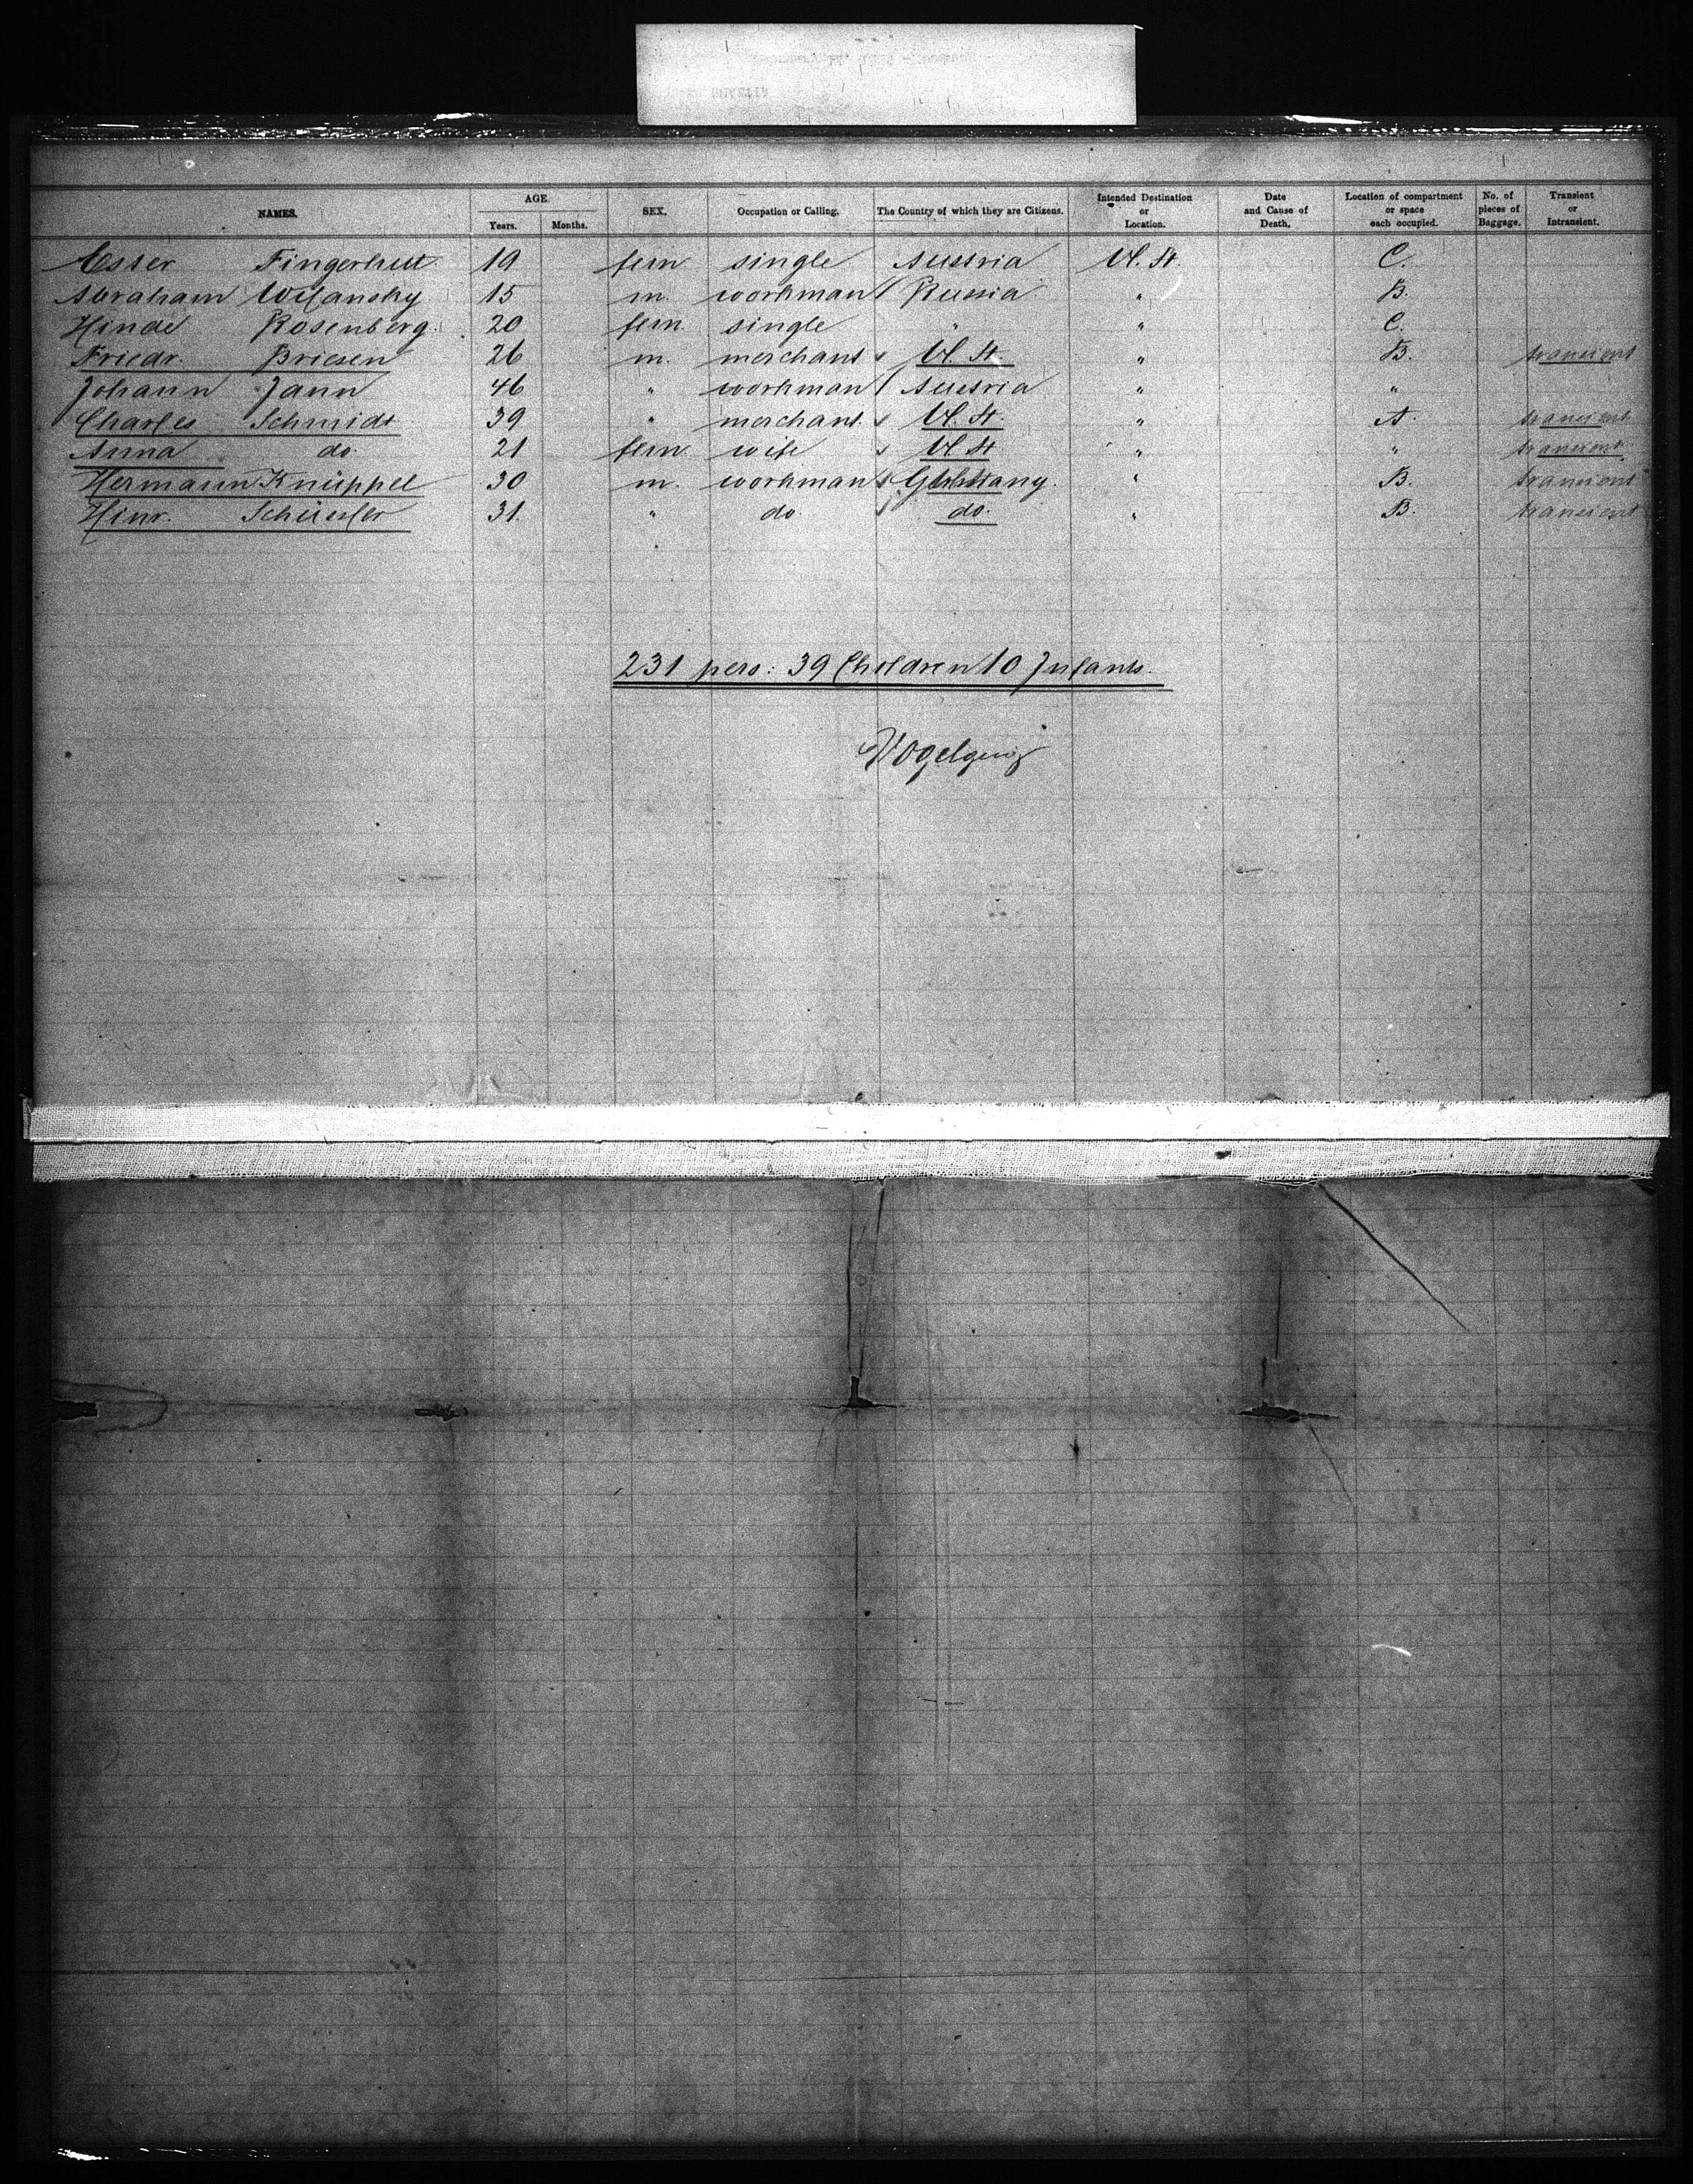 NAMES. AGE. Years. Months. SEX. Occupation or Calling. The Country of which they are Citizens. Intended Destination or Location. Date and Cause of Death. Location of compartment or space each occupied. No. of pieces of Baggage. Transient or Intransient.
Esser Fingerhut 19 fem single Austria U. St. C.
Abraham Wilansky 15 m. workman Russia " B.
Hinde Rosenberg. 20 fem. single " " C.
Friedr. Briesen 26 m. merchant U. St. " B. transient
Johann Jann 46 " workman Austria " "
Charles Schmidt 39 " merchant U. St. " A transient
Anna do. 21 fem wife U. St " " transient
Hermann Knüppel 30 m. workman Germany. " B. transient
Hinr. 31. " do. do. " B. transient
231 pers: 39 Children 10 Infants.